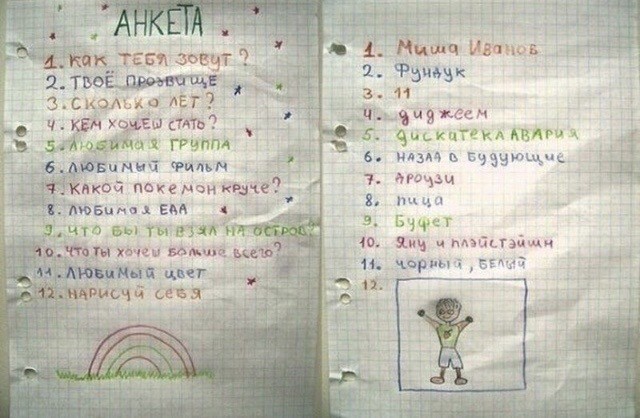 АНКЕТА
1. КАК ТЕБЯ ЗОВУТ?
2. ТВОЁ ПРОЗВИЩЕ
3. СКОЛЬКО ЛЕТ?
4. КЕМ ХОЧЕШ СТАТЬ?
5. ЛЮБИМАЯ ГРУППА
6. ЛЮБИМЫЙ ФИЛЬМ
7. КАКОЙ ПОКЕМОН КРУЧЕ?
8. ЛЮБИМАЯ ЕДА
9. ЧТО БЫ ТЫ ВЗЯЛ НА ОСТРОВ?
10. ЧТО ТЫ ХОЧЕШ БОЛЬШЕ ВСЕГО?
11. ЛЮБИМЫЙ ЦВЕТ
12. НАРИСУЙ СЕБЯ
1. Миша Иванов
2. Фундук
3. 11
4. диджеем
5. дискатека АВАРИЯ
6. НАЗАД в будующие
7. ДРОУЗИ
8. пица
9. Буфет
10. Яну и плэйстэйшн
11. чорный, БЕЛЫЙ
12.